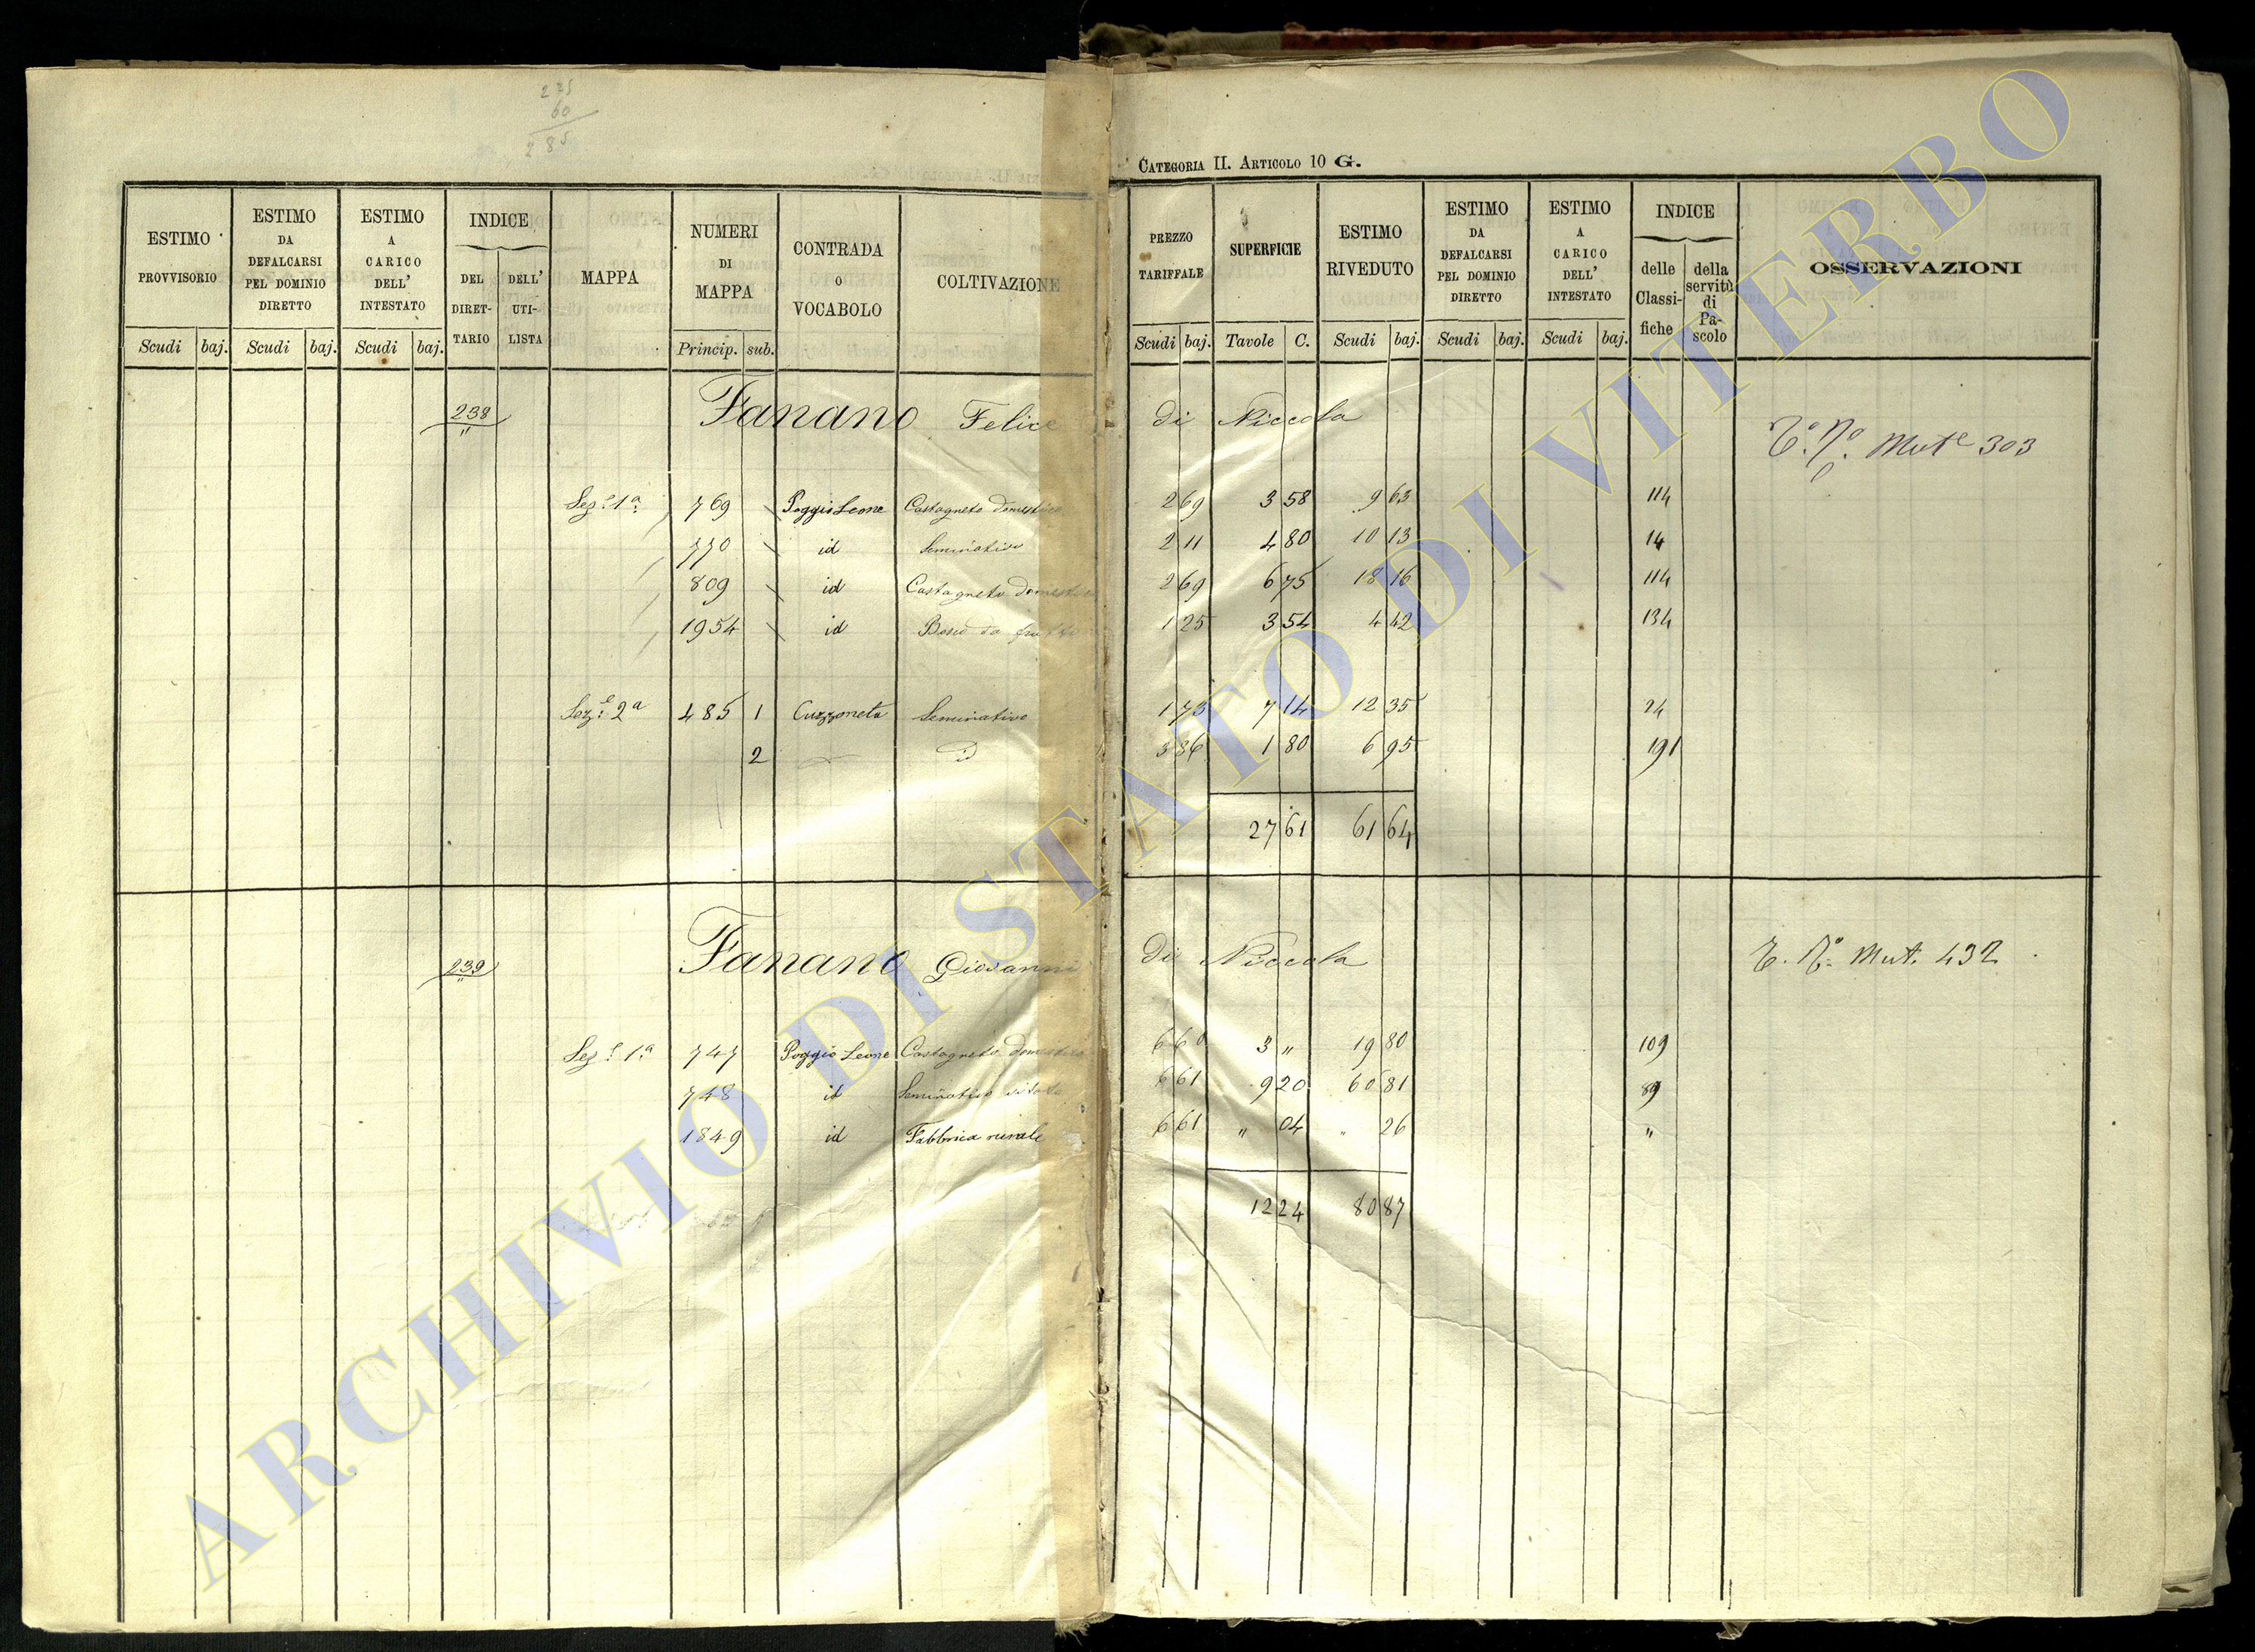 275
60
285
CATEGORIA II. ARTICOLO 10 G.
ESTIMO PROVVISORIO Scudi baj.
ESTIMO DA DEFALCARSI PEL DOMINIO DIRETTO Scudi baj.
ESTIMO A CARICO DELL' INTESTATO Scudi baj.
INDICE DEL DIRETTARIO DELL' UTILISTA
MAPPA
NUMERI DI MAPPA Princip. sub.
CONTRADA O VOCABOLO
COLTIVAZIONE
PREZZO TARIFFALE Scudi baj.
SUPERFICIE Tavole C.
ESTIMO RIVEDUTO Scudi baj.
ESTIMO DA DEFALCARSI PEL DOMINIO DIRETTO Scudi baj.
ESTIMO A CARICO DELL' INTESTATO Scudi baj.
INDICE delle Classifiche della servitù di Pascolo
OSSERVAZIONI
238 Fanano Felice di Niccola Mut.e 303
Sez.e 1a 769 Poggio Leone Castagneto domestico 2 69 3 58 9 63 114
770 id Seminativo 2 11 4 80 10 13 14
809 id Castagneto domestico 2 69 6 75 18 16 114
1954 id Bosco da frutto 1 25 3 54 4 42 134
Sez.e 2a 485 1 Cuzzoneta Seminativo 1 73 7 14 12 35 24
2 3 86 1 80 6 95 191
27 61 61 64
239 Fanano Giovanni di Niccola Mut. 432
Sez.e 1.a 747 Poggio Leone Castagneto domestico 6 60 3 " 19 80 109
748 id Seminativo vitato 6 61 9 20 60 81 89
1849 id Fabbrica rurale 6 61 " 04 " 26 "
12 24 80 87
ARCHIVIO DI STATO DI VITERBO